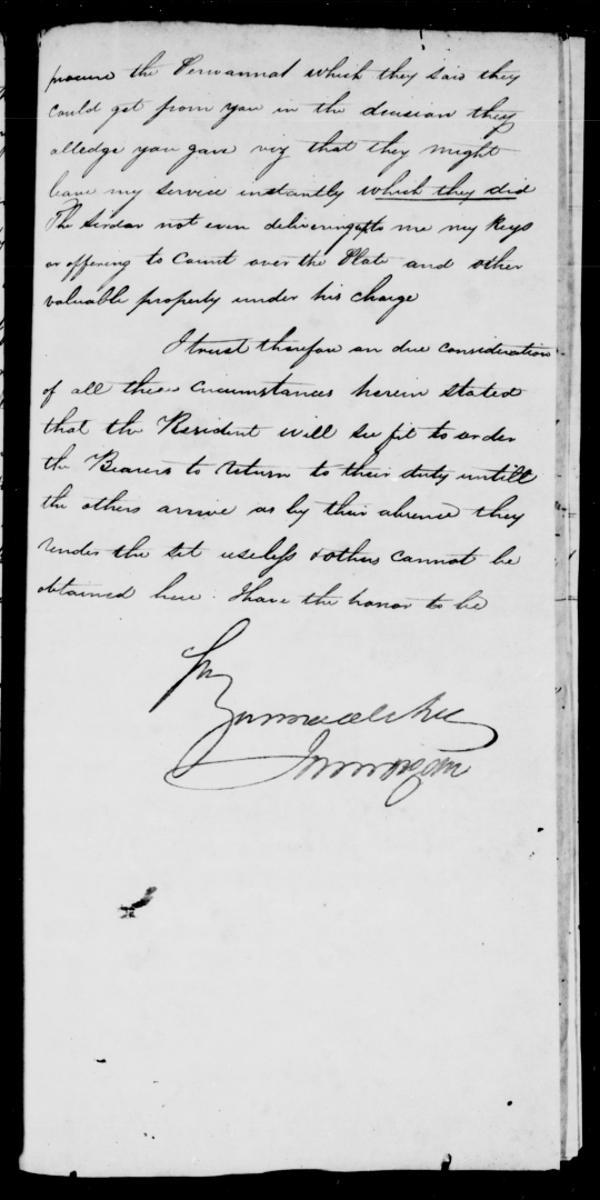 procure the Perwannah which they said they
could get from you in the decision they
alledge you gave viz that they might
leave my service instantly which they did
The Sirdar not even delivering to me my Keys
or offering to Count over the Plate and other
valuable property under his charge
I trust therefore on due consideration
of all these circumstances herein stated
that the Resident will see fit to order
the Bearers to return to their duty untill
the others arrive as by their absence they
render the set useless & others cannot be
obtained here. I have the honor to be
Sir